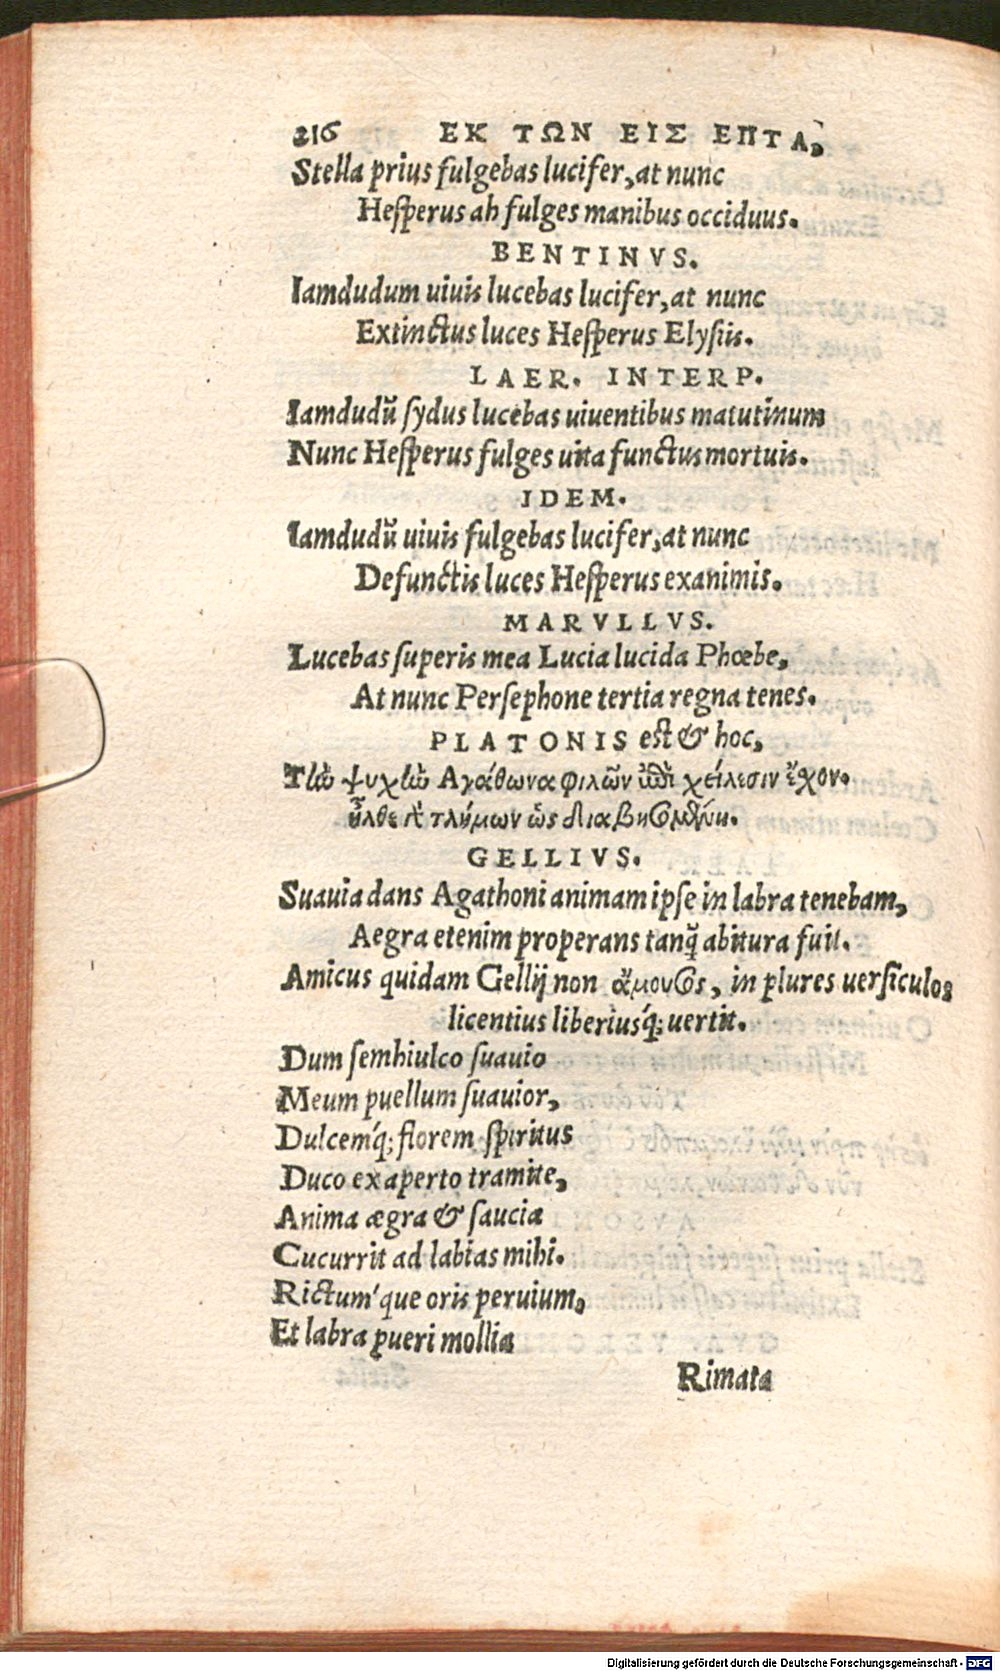 216 ΕΚ ΤΩΝ ΕΙΣ ΕΠΤΑ,
Stella prius fulgebas lucifer, at nunc
Hesperus ah fulges manibus occiduus.
BENTINVS.
Iamdudum uiuis lucebas lucifer, at nunc
Extinctus luces Hesperus Elysiis.
LAER. INTERP.
Iamdudũ sydus lucebas uiuentibus matutinum
Nunc Hesperus fulges uita functus mortuis.
IDEM.
Iamdudũ uiuis fulgebas lucifer, at nunc
Defunctis luces Hesperus exanimis.
MARVLLVS.
Lucebas superis mea Lucia lucida Phœbe,
At nunc Persephone tertia regna tenes.
PLATONIS est & hoc,
Τὼ ψυχὼ Αγάθωνα φιλῶν ἐπὶ χείλεσιν ἔχον.
ἦλθε γὰρ τλήμων ὡς διαβησομένη.
GELLIVS.
Suauia dans Agathoni animam ipse in labra tenebam,
Aegra etenim properans tanq̃ abitura fuit.
Amicus quidam Gellij non ἄμουσος, in plures uersiculos
licentius liberiusq́; uertit.
Dum semhiulco suauio
Meum puellum suauior,
Dulcemq́; florem spiritus
Duco ex aperto tramite,
Anima ægra & saucia
Cucurrit ad labias mihi.
Rictum'que oris peruium,
Et labra pueri mollia
Rimata
Digitalisierung gefördert durch die Deutsche Forschungsgemeinschaft - DFG